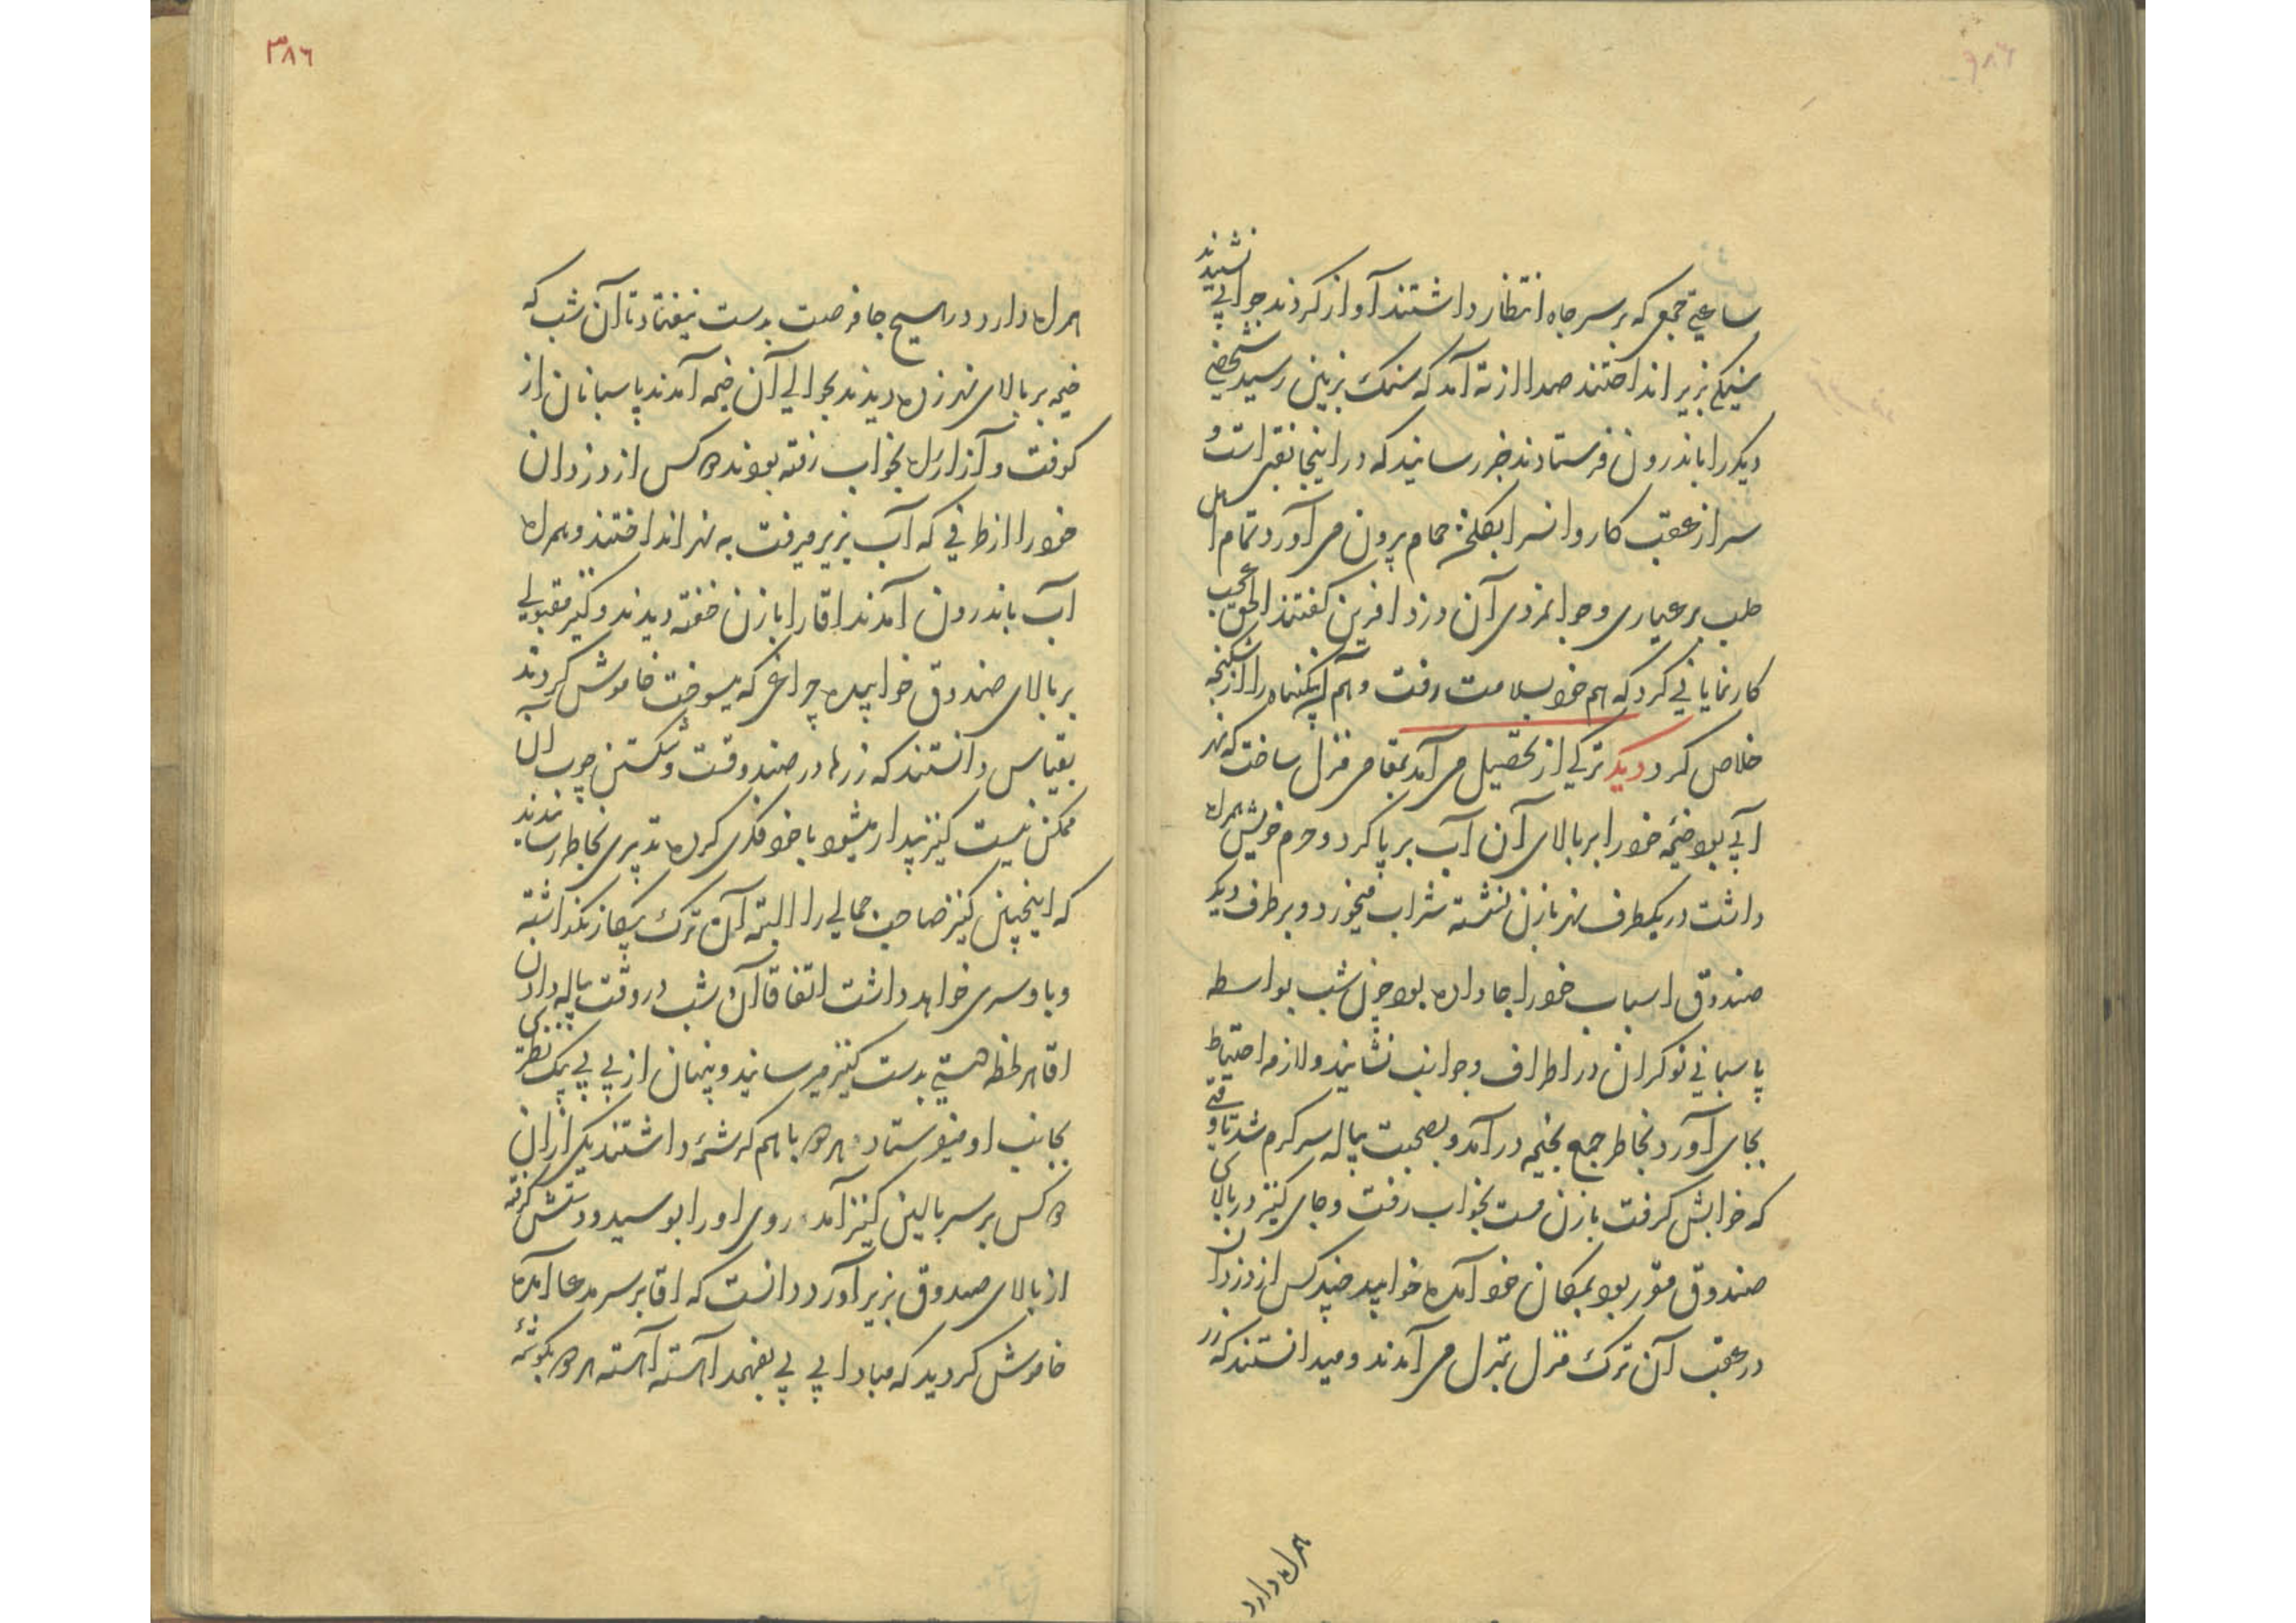 ساعتی جمعی که بر سر چاه انتظار داشتند آواز کردند جوابی نشنیدند
سنگی بزیر انداختند صدا از ته آمد که سنگ بزمین رسید شخصی
دیکر را باندرون فرستادند خبر رسانید که در اینجا نقبی است و
سر از عقب کاروانسرا بکلخن حمام بیرون می آورد تمام اهل
طلب بر عیاری و جوانمردی آن دزد افرین کفتند الحق عجب
کار نمایانی کرد که هم خود بسلامت رفت و هم این بیکناه را از شکنجه
خلاص کرد دیکر ترکی از تحصیل می آمد بمقامی منزل ساخت که نهر
آبی بود خیمه خود را بر بالای آن آب بر پا کرد و حرم خویش همراه
داشت در یکطرف نهر با زن نشسته شراب میخورد و بر طرف دیکر
صندوق اسباب خود را جا داده بود چون شب بواسطه
پاسبانی نوکران در اطراف و جوانب نشانید و لازمه احتیاط
بجای آورد بخاطر جمع بخیمه درآمد و بصحبت پیاله سرکرم شد تا وقتی
که خوابش کرفت با زن مست بخواب رفت و جای کنیز در بالای
صندوق مقرر بود بمکان خود آمده خوابید چند کس از دزدان
در عقب آن ترک منزل بمنزل می آمدند و میدانستند که زر
همراه دارد
٣٨٦
همراه دارد در هیچ جا فرصت بدست نیفتاد تا آن شب که
خیمه بر بالای نهر زده دیدند بحوالی آن خیمه آمدند پاسبانان از
کوفت و آزار راه بخواب رفته بودند دو کس از دزدان
خود را از طرفی که آب بزیر میرفت به نهر انداختند و همراه
آب باندرون آمدند اقا را با زن خفته دیدند و کنیز مقبولی
بر بالای صندوق خوابیده چراغی که میسوخت خاموش کردند
بقیاس دانستند که زرها در صندوقست و شکستن چوب آن
ممکن نیست کنیز بیدار میشود با خود فکری کرده تدبیری بخاطر رسانیدند
که اینچنین کنیز صاحب جمالی را البته آن ترک بیکار نکذاشته
و با او سری خواهد داشت اتفاقا آن شب در وقت پیاله دادن
اقا هر لحظه دستی بدست کنیز میرسانید و پنهان از بی بی یک نظری
بجانب او میفرستاد و هر دو با هم کرشمه داشتند یکی از ان
دو کس بر سر بالین کنیز آمد و روی او را بوسید و دستش کرفته
از بالای صندوق بزیر آورد دانست که اقا بر سر مدعا آمده
خاموش کردید که مبادا بی بی بفهمد آهسته آهسته هر دو بکوشهٔ